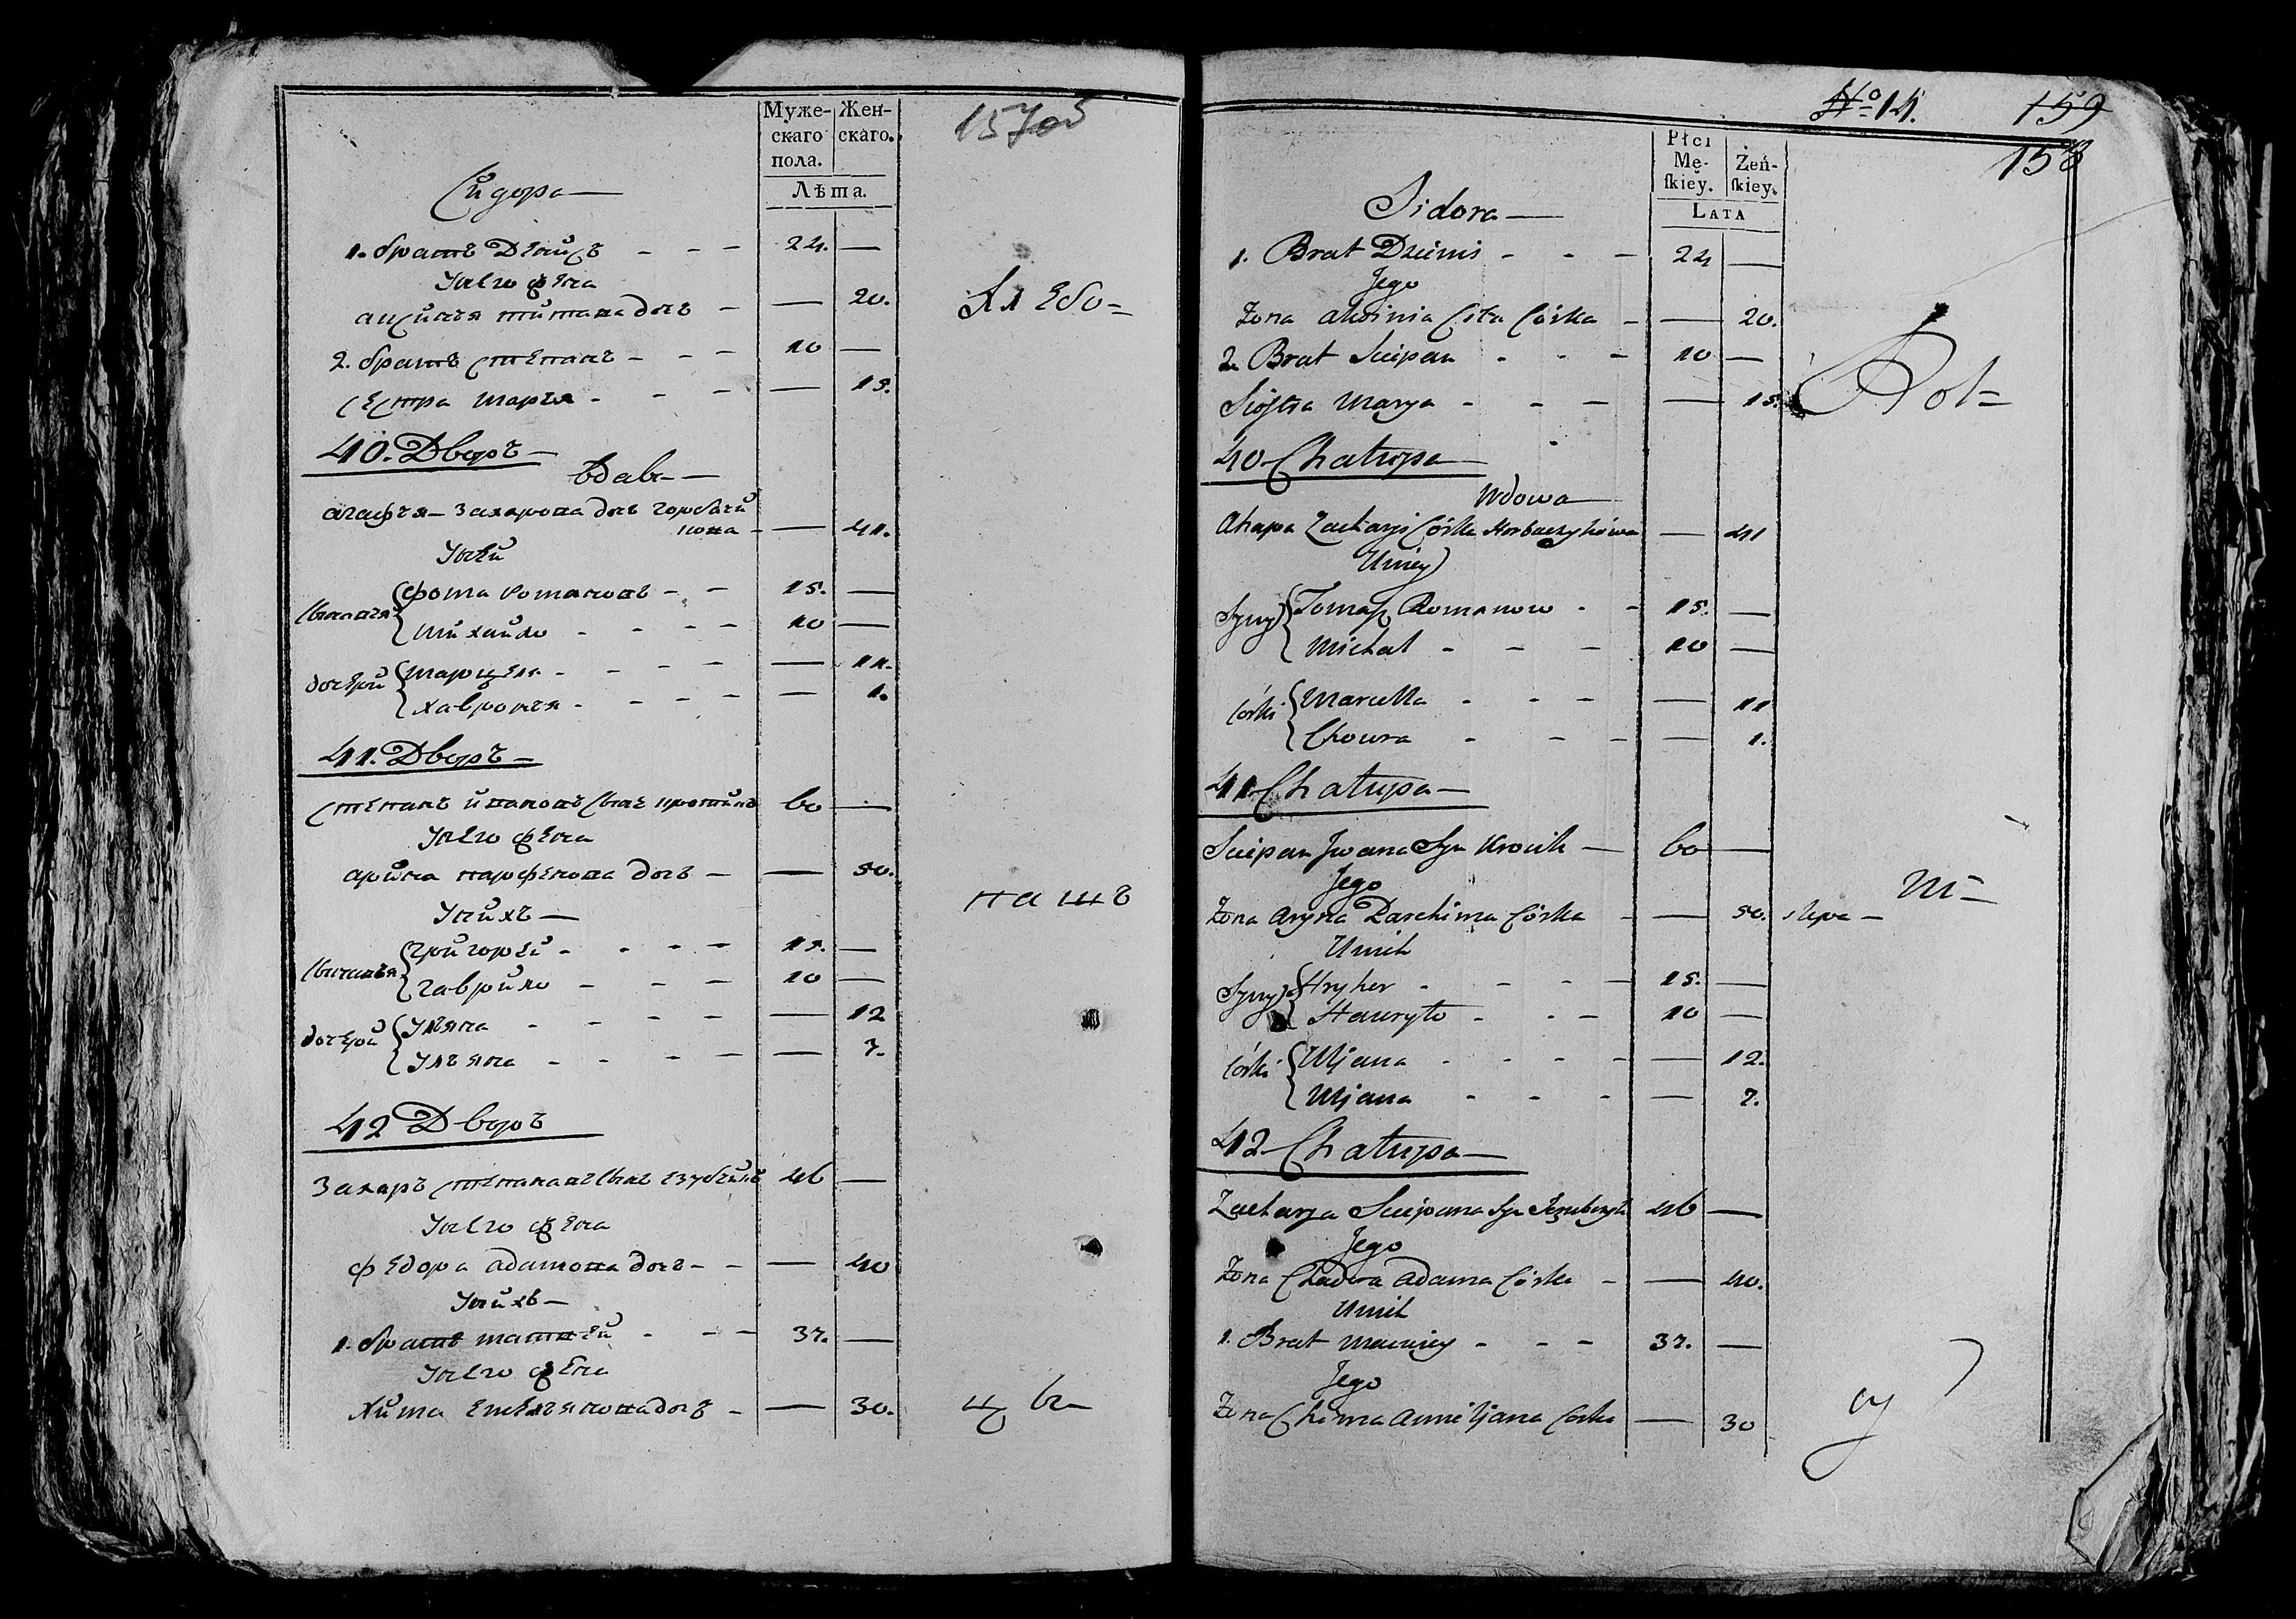 Муже- Жен-
скаго скаго.
пола.
Лѣта.
157об
Сидора —
1. братъ Денисъ - - - 24. —
Унего жена
аксинья титова дочь - — 20.
Хлебо=
2. братъ степанъ - - - 10 —
сестра марья - - - — 15.
40. Дворъ —
вдова —
агафья — захарова дочь горбачи
кова - — 41.
Унеи
сыновья фома романовъ - - 15. —
михайло - - - - 10 —
дочери марцеля - - - - — 11.
хавронья - - - - — 1.
41. Дворъ —
степанъ ивановъ сынъ 60 —
Унего жена
арина парфенова дочь — — 50.
Унихъ —
пашъ
сыновья григореи - - - - 15. —
гаврило - - - - 10 —
дочери Ульяна - - - - — 12
Ульяна - - - - — 7.
42 Дворъ
захаръ степановъ сынъ 46 —
Унего жена
федора адамова дочь - - — 40
Унихъ —
1. братъ матвеи - - - 37. —
Унего жена
хима емельянова дочь - — 30.
No 14. 159
158
Płci
Mę- Żeń-
ſkiey. ſkiey.
LATA
Sidora —
1. Brat Dzienis - - - 24 —
Jego
Zona Axinia Cita Córka - — 20.
2. Brat Sciepan - - - 10 —
Siostra Marya - - - — 15.
Rol=
40 Chatupa —
Wdowa —
Ahapa Zacharji Córka Horbaczykowa — 41
Uniey
Syny Tomasz Romanow - - 15. —
Michal - - - 10 —
Córki Marcella - - - — 11
Chowra - - - — 1.
41 Chatupa —
Sciepan Jwana Syn Krocik — 60 —
Jego
Zona Aryna Parchima Córka - — 50. slepa —
Unich
Syny Hryher - - - - 15. —
Hauryło - - - 10 —
Córki Uljana - - - - — 12.
Uljana - - - - — 7.
42 Chatupa —
Zacharya Sciepana Syn 46 —
Jego
Zona Chadora Adama Córka - — 40.
Unich
1. Brat Maciiey - - - 37. —
Jego
Zona Chima Amieljana Corka — 30